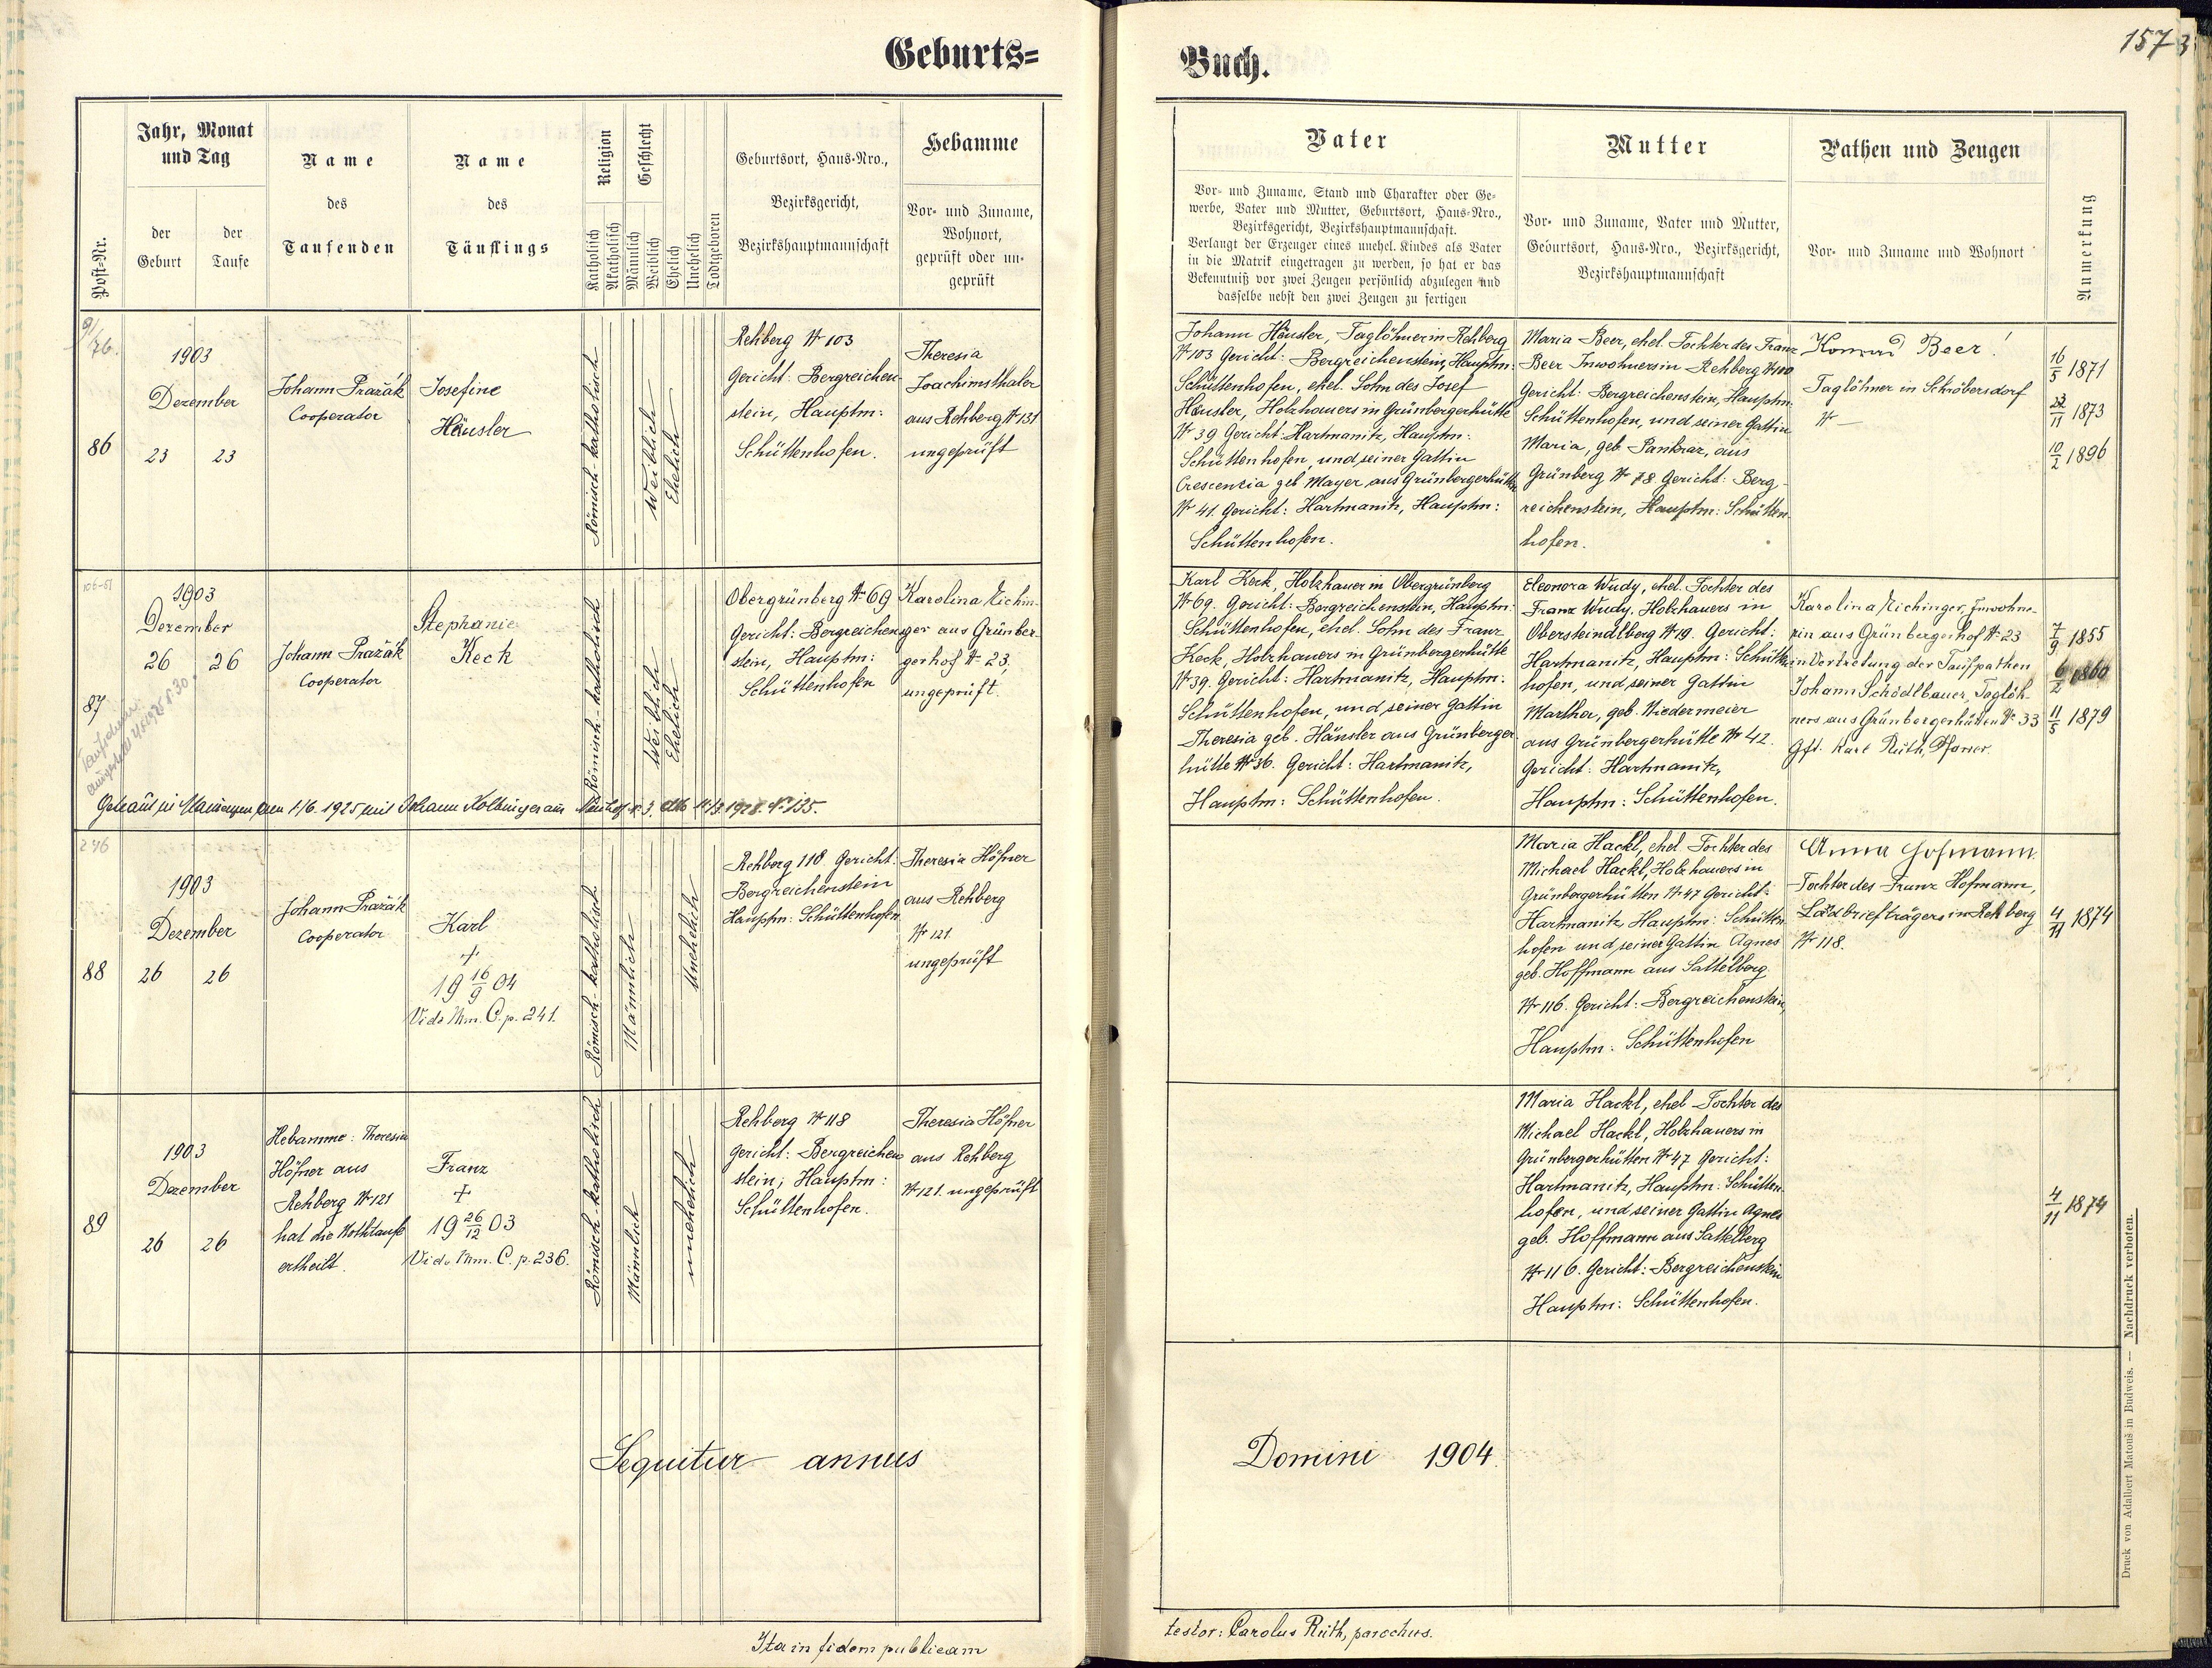 Geburts=
Buch.
157
3
Post=Nr.
Jahr, Monat
und Tag
der
Geburt
der
Taufe
Name
des
Taufenden
Name
des
Täuflings
Religion
Katholisch
Akatholisch
Geschlecht
Männlich
Weiblich
Ehelich
Unehelich
Todtgeboren
Geburtsort, Haus=Nro.,
Bezirksgericht,
Bezirkshauptmannschaft
Hebamme
Vor= und Zuname,
Wohnort,
geprüft oder un=
geprüft
Vater
Vor= und Zuname, Stand und Charakter oder Ge=
werbe, Vater und Mutter, Geburtsort, Haus=Nro.,
Bezirksgericht, Bezirkshauptmannschaft.
Verlangt der Erzeuger eines unehel. Kindes als Vater
in die Matrik eingetragen zu werden, so hat er das
Bekenntniß vor zwei Zeugen persönlich abzulegen und
dasselbe nebst den zwei Zeugen zu fertigen
Mutter
Vor= und Zuname, Vater und Mutter,
Geburtsort, Haus=Nro., Bezirksgericht,
Bezirkshauptmannschaft
Pathen und Zeugen
Vor= und Zuname und Wohnort
Anmerkung
86
1903
Dezember
23
23
Johann Pražák
Cooperator
Josefine
Häusler
Römisch-katholisch
Weiblich
Ehelich
Rehberg № 103
Gericht: Bergreichen-
stein, Hauptm:
Schüttenhofen.
Theresia
Joachimsthaler
aus Rehberg № 131
ungeprüft
Johann Häusler, Taglöhner in Rehberg
№ 103 Gericht: Bergreichenstein, Hauptm:
Schüttenhofen, ehel. Sohn des Josef
Häusler, Holzhauers in Grünbergerhütte
№ 39 Gericht: Hartmanitz, Hauptm:
Schüttenhofen, und seiner Gattin
Crescentia geb Mayer aus Grünbergerhütte
№ 41. Gericht: Hartmanitz, Hauptm:
Schüttenhofen.
Maria Beer, ehel. Tochter des Franz
Beer Inwohners in Rehberg №
Gericht: Bergreichenstein, Hauptm.
Schüttenhofen, und seiner Gattin
Maria, geb. Pankraz, aus
Grünberg № 78 Gericht: Berg-
reichenstein, Hauptm: Schütten-
hofen.
Konrad Beer!
Taglöhner in Schröbersdorf
№ —
16/5 1871
/11 1873
10/2 1896
87
1903
Dezember
26
26
Johann Pražák
Cooperator
Stephanie
Keck
Römisch-katholisch
Weiblich
Ehelich
Obergrünberg № 69
Gericht: Bergreichen-
stein, Hauptm:
Schüttenhofen
Karolina Eichin-
ger aus Grünber-
gerhof № 23,
ungeprüft.
Karl Keck, Holzhauer in Obergrünberg
№ 69. Gericht: Bergreichenstein, Hauptm.
Schüttenhofen, ehel. Sohn des Franz
Keck, Holzhauers in Grünbergerhütte
№ 39. Gericht: Hartmanitz, Hauptm:
Schüttenhofen, und seiner Gattin
Theresia geb. Häusler aus Grünberger
hütte № 36. Gericht: Hartmanitz,
Hauptm: Schüttenhofen.
Eleonora Wudy, ehel. Tochter des
Franz Wudy, Holzhauers in
Obersteindlberg № 19. Gericht:
Hartmanitz, Hauptm: Schütten
hofen, und seiner Gattin
Martha, geb. Niedermeier
aus Grünbergerhütte № 42.
Gericht: Hartmanitz,
Hauptm: Schüttenhofen.
Karolina Eichinger, Inwohne-
rin aus Grünbergerhof № 23
in Vertretung der Taufpathen
Johann Schödlbauer, Taglöh-
ners aus Grünbergerhütten № 33
Gft. Karl Rüth, Pfarrer.
7/9 1855
6/2 1860
11/5 1879
Taufschein
Getraut in am 1/6. 1925 mit Johann aus № 3. 1928. № 135.
246
88
1903
Dezember
26
26
Johann Pražák
Cooperator
Karl
+
19 16/9 04
Vide Mm. C. p. 241.
Römisch-katholisch
Männlich
Unehelich
Rehberg 118 Gericht:
Bergreichenstein
Hauptm: Schüttenhofen
Theresia Höfner
aus Rehberg
№ 121
ungeprüft
Maria Hackl, ehel. Tochter des
Michael Hackl, Holzhauers in
Grünbergerhütten № 47 Gericht:
Hartmanitz, Hauptm: Schütten
hofen und seiner Gattin Agnes
geb. Hoffmann aus Sattelberg
№ 116. Gericht: Bergreichenstein,
Hauptm: Schüttenhofen
Anna Hofmann
Tochter des Franz Hofmann,
Landbriefträgers in Rehberg
№ 118.
4/11 1874
89
1903
Dezember
26
26
Hebamme: Theresia
Höfner aus
Rehberg № 121
hat die Nothtaufe
ertheilt.
Franz
+
19 26/12 03
Vide Mm. C. p. 236.
Römisch-katholisch
Männlich
unehelich
Rehberg № 118
Gericht: Bergreichen
stein, Hauptm:
Schüttenhofen.
Theresia Höfner
aus Rehberg
№ 121. ungeprüft
Maria Hackl, ehel Tochter des
Michael Hackl, Holzhauers in
Grünbergerhütten № 47 Gericht:
Hartmanitz, Hauptm: Schütten
hofen, und seiner Gattin Agnes
geb. Hoffmann aus Sattelberg
№ 116. Gericht: Bergreichenstein
Hauptm: Schüttenhofen.
4/11 1874
Sequitur annus
Domini 1904
Ita in fidem publicam
testor: Carolus Rüth, parochus.
Druck von Adalbert Matouš in Budweis. — Nachdruck verboten.